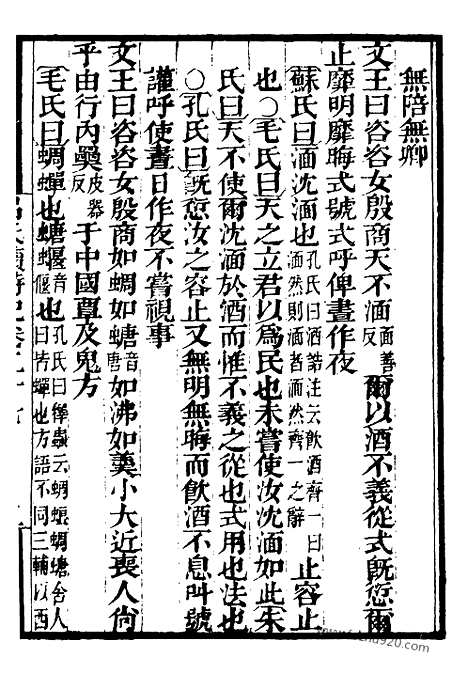 無陪無卿
文王曰咨咨女殷商天不湎面善反爾以酒不義從式既愆爾
止靡明靡晦式號式呼俾晝作夜
蘇氏曰湎沈湎也孔氏曰酒誥注云飲酒齊一曰湎然則湎者湎然齊一之辭止容止
也○毛氏曰天之立君以爲民也未嘗使汝沈湎如此朱
氏曰天不使爾沈湎於酒而惟不義之從也式用也法也
○孔氏曰既愆汝之容止又無明無晦而飲酒不息叫號
讙呼使晝日作夜不嘗視事
文王曰咨咨女殷商如蜩如螗音唐如沸如羹小大近喪人尙
乎由行內奰皮器反于中國覃及鬼方
毛氏曰蜩蟬也螗蝘音偃也孔氏曰釋蟲云蜩蜋蜩螗舍人曰皆蟬也方語不同三輔以西